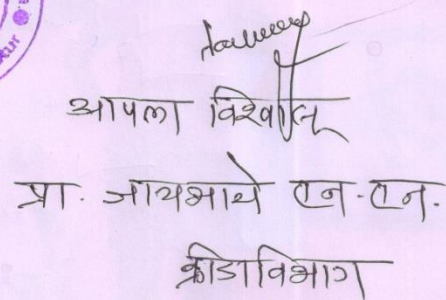 आपला विश्वासू
प्रा. जायभाये एन.एन.
क्रीडाविभाग